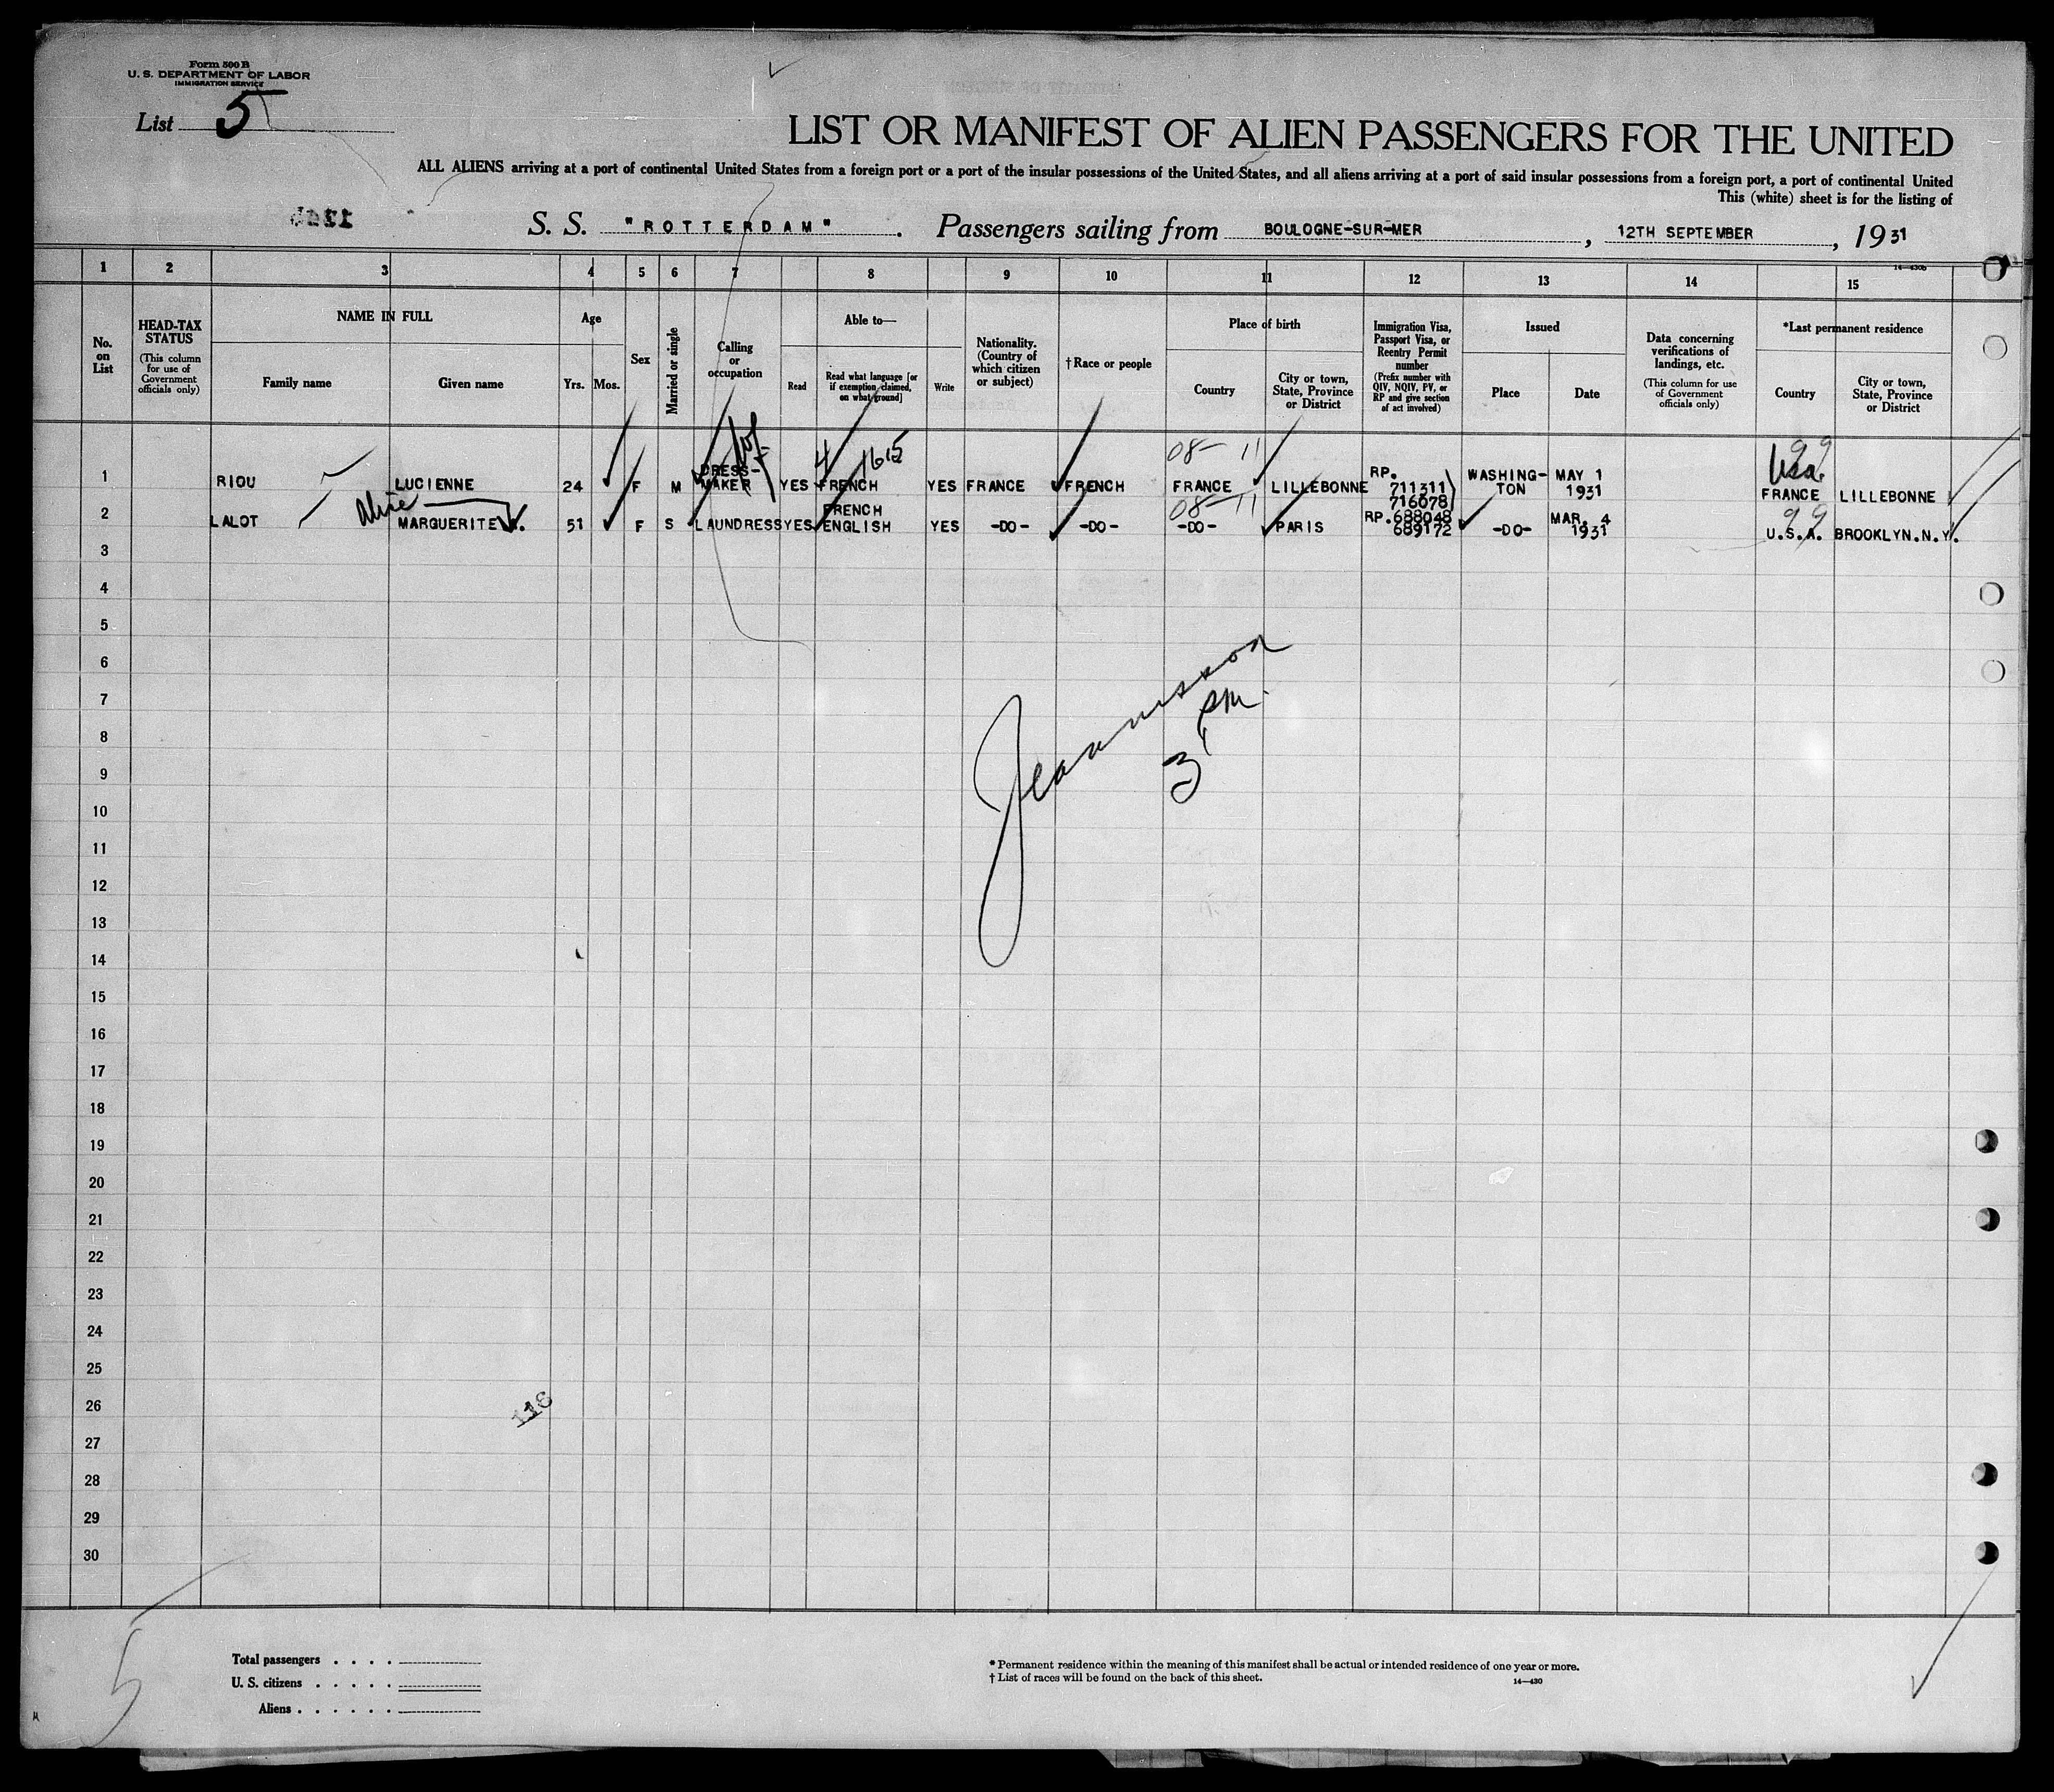 Form 500 B
U. S. DEPARTMENT OF LABOR
IMMIGRATION SERVICE
List 5
LIST OR MANIFEST OF ALIEN PASSENGERS FOR THE UNITED
ALL ALIENS arriving at a port of continental United States from a foreign port or a port of the insular possessions of the United States, and all aliens arriving at a port of said insular possessions from a foreign port, a port of continental United
This (white) sheet is for the listing of
S. S. "ROTTERDAM". Passengers sailing from BOULOGNE-SUR-MER, 12TH SEPTEMBER, 1931
14—430b
1 2 3 4 5 6 7 8 9 10 11 12 13 14 15
No. on List
HEAD-TAX STATUS
(This column for use of Government officials only)
NAME IN FULL
Family name
Given name
Age
Yrs. Mos.
Sex
Married or single
Calling or occupation
Able to—
Read
Read what language [or if exemption claimed, on what ground]
Write
Nationality. (Country of which citizen or subject)
† Race or people
Place of birth
Country
City or town, State, Province or District
Immigration Visa, Passport Visa, or Reentry Permit number
(Prefix number with QIV, NQIV, PV, or RP and give section of act involved)
Issued
Place
Date
Data concerning verifications of landings, etc.
(This column for use of Government officials only)
*Last permanent residence
Country
City or town, State, Province or District
4 1615
08- 11
99
Usa.
1 RIOU LUCIENNE 24 F M DRESS-MAKER YES FRENCH YES FRANCE FRENCH FRANCE LILLEBONNE RP. 711311 716078 WASHING-TON MAY 1 1931 FRANCE LILLEBONNE
Alice
08-11
99
2 LALOT MARGUERITE 51 F S LAUNDRESS YES FRENCH ENGLISH YES -DO- -DO- -DO- PARIS RP. 688048 689172 -DO- MAR. 4 1931 U.S.A. BROOKLYN.N.Y.
3
4
5
6
7
8
9
10
11
12
13
14
15
16
17
18
19
20
21
22
23
24
25
26
27
28
29
30
116
5
Total passengers
U. S. citizens
Aliens
* Permanent residence within the meaning of this manifest shall be actual or intended residence of one year or more.
† List of races will be found on the back of this sheet.
14—430